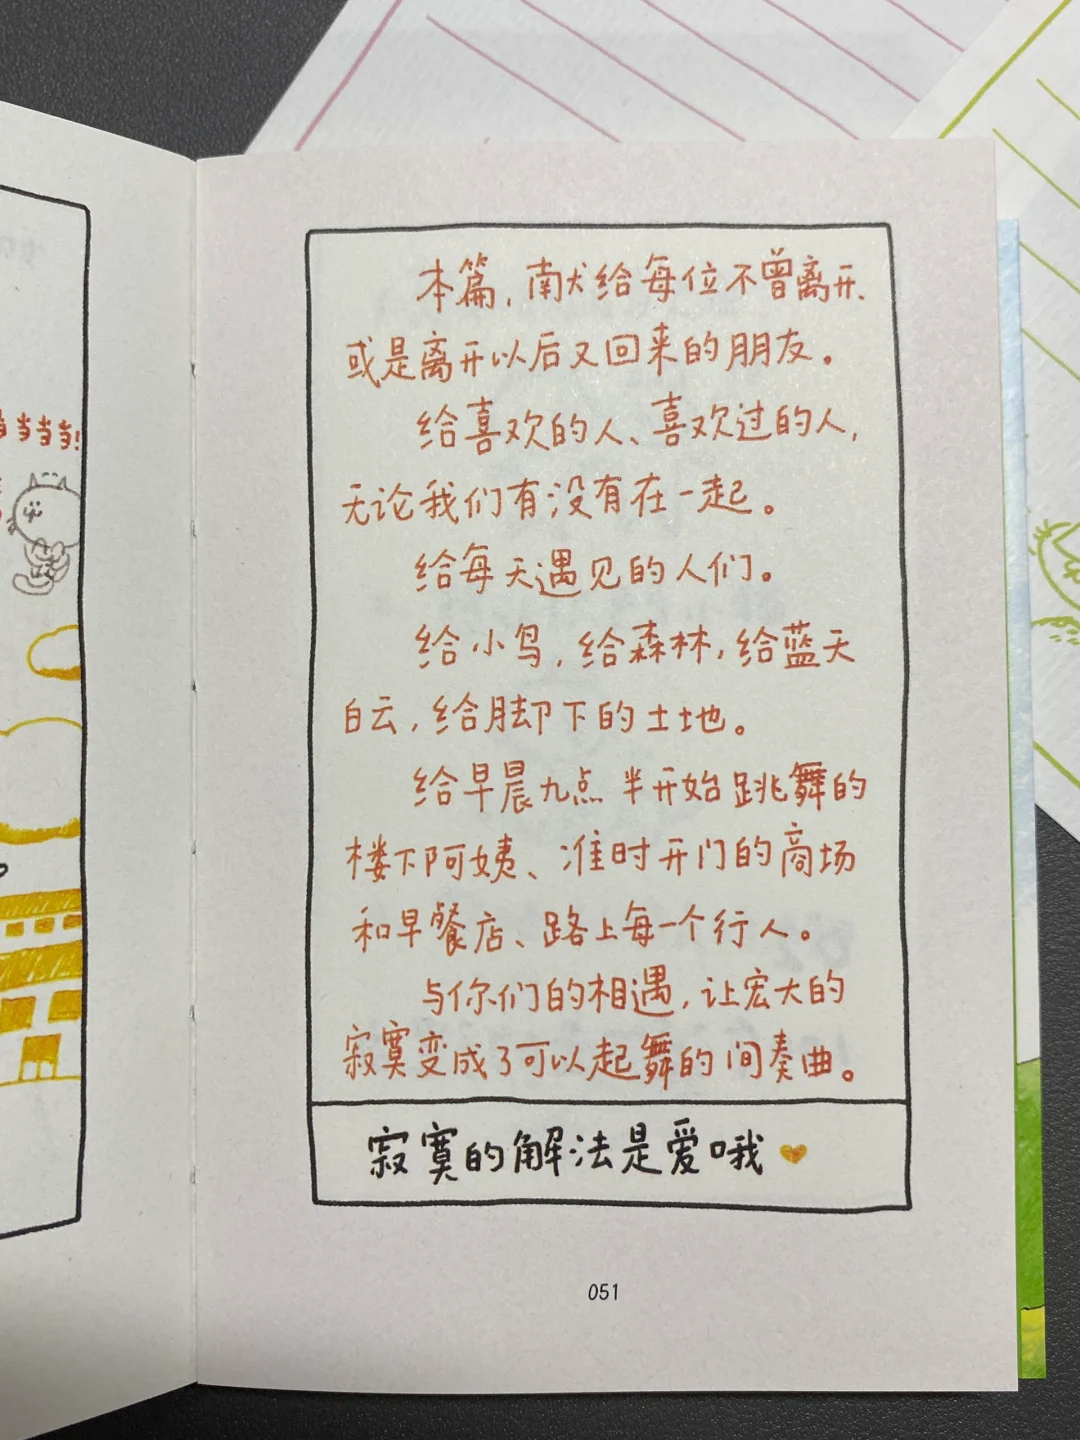 当当当!
本篇，献给每位不曾离开
或是离开以后又回来的朋友。
给喜欢的人、喜欢过的人，
无论我们有没有在一起。
给每天遇见的人们。
给小鸟，给森林，给蓝天
白云，给脚下的土地。
给早晨九点半开始跳舞的
楼下阿姨、准时开门的商场
和早餐店、路上每一个行人。
与你们的相遇，让宏大的
寂寞变成了可以起舞的间奏曲。
寂寞的解法是爱哦
051